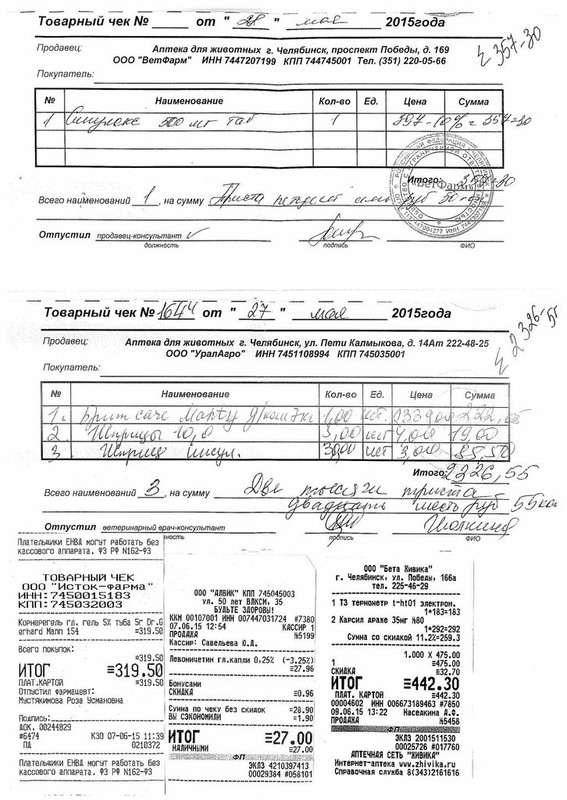 Товарный чек № от "28" мая 2015года
Σ 357-30
Продавец: Аптека для животных г. Челябинск, проспект Победы, д. 169
ООО "ВетФарм" ИНН 7447207199 КПП 744745001 Тел. (351) 220-05-66
Покупатель:
№ Наименование Кол-во Ед. Цена Сумма
1 500 мг таб 1 397-10% = 357-30
Итого: 357-30
"ВетФарм"
Всего наименований 1, на сумму Триста пятьдесят семь руб 30 коп
Отпустил продавец-консультант
должность подпись ФИО
Товарный чек № 1644 от "27" мая 2015года
Σ 2326-55
Продавец: Аптека для животных г. Челябинск, ул. Пети Калмыкова, д. 14Ат 222-48-25
ООО "УралАгро" ИНН 7451108994 КПП 745035001
Покупатель:
№ Наименование Кол-во Ед. Цена Сумма
1. Брит саче 1,00 шт.
2. Шприцы 10,0 шт 19,00
3 Шприц инсул. шт 85,50
Итого: 2326,55
Всего наименований 3, на сумму Две тысячи триста
двадцать шесть руб 55 коп
Отпустил ветеринарный врач-консультант
должность подпись ФИО
Плательщики ЕНВД могут работать без
кассового аппарата. ФЗ РФ N162-93
ТОВАРНЫЙ ЧЕК
ООО "Исток-Фарма"
ИНН:7450015183
КПП:745032003
Корнерегель гл. гель 5% туба 5г Dr.G
erhard Mann 154 ≡319.50
Всего покупок:
≡319.50
ИТОГ ≡319.50
ПЛАТ.КАРТОЙ ≡319.50
Отпустил фармацевт:
Мустякимова Роза Усмановна
Подпись:
ДОК. 00244829
#6474 К30 07-06-15 11:39
ПД 0210372
Плательщики ЕНВД могут работать без
кассового аппарата. ФЗ РФ N162-93
ООО "АЛВИК" КПП 745045003
ул. 50 лет ВЛКСМ, 35
БУДЬТЕ ЗДОРОВЫ!
ККМ 00107001 ИНН 007447031724 #7380
07.06.15 12:54 КАССИР 1
ПРОДАЖА N5199
Кассир: Савельева Ю.Л.
Левомицетин гл.капли 0,25% (-3.25%)
≡27.96
Бонусами
СКИДКА ≡0.96
Сумма по чеку без скидок ≡28.90
ВЫ СЭКОНОМИЛИ ≡1.90
ИТОГ ≡27.00
НАЛИЧНЫМИ ≡27.00
ФП
ЭКЛЗ 4210397413
00029384 #058101
ООО "Бета Живика"
г. Челябинск, ул. Победы, 166а
тел. 225-46-29
1 ТЗ термометр l-ht01 электрон.
1*183=183
2 Карсил драже 35мг N80
1*292=292
Сумма со скидкой 11.2%=259.3
1.000 X 475.00
1 ≡475.00
СКИДКА ≡32.70
ИТОГ ≡442.30
ПЛАТ. КАРТОЙ ≡442.30
00004602 ИНН 006673189463 #7850
09.06.15 13:22 Наседкина А.Ф.
ПРОДАЖА N5458
ФП
ЭКЛЗ 2001511530
00025726 #017760
АПТЕЧНАЯ СЕТЬ "ЖИВИКА"
Интернет-аптека www.zhivika.ru
Справочная служба 8(343)2161616